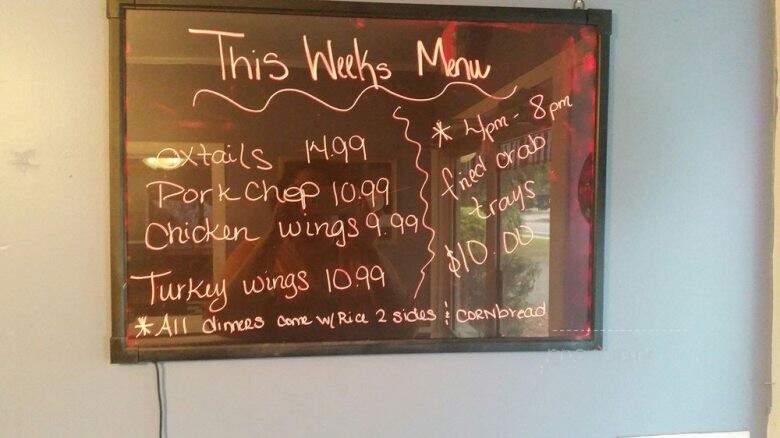 This Weeks Menu
oxtails 14.99
Pork Chop 10.99
Chicken wings 9.99
Turkey wings 10.99
* 4pm - 8pm
fried crab
trays
$10.00
* All dinners come w/ Rice 2 sides & CORNbread